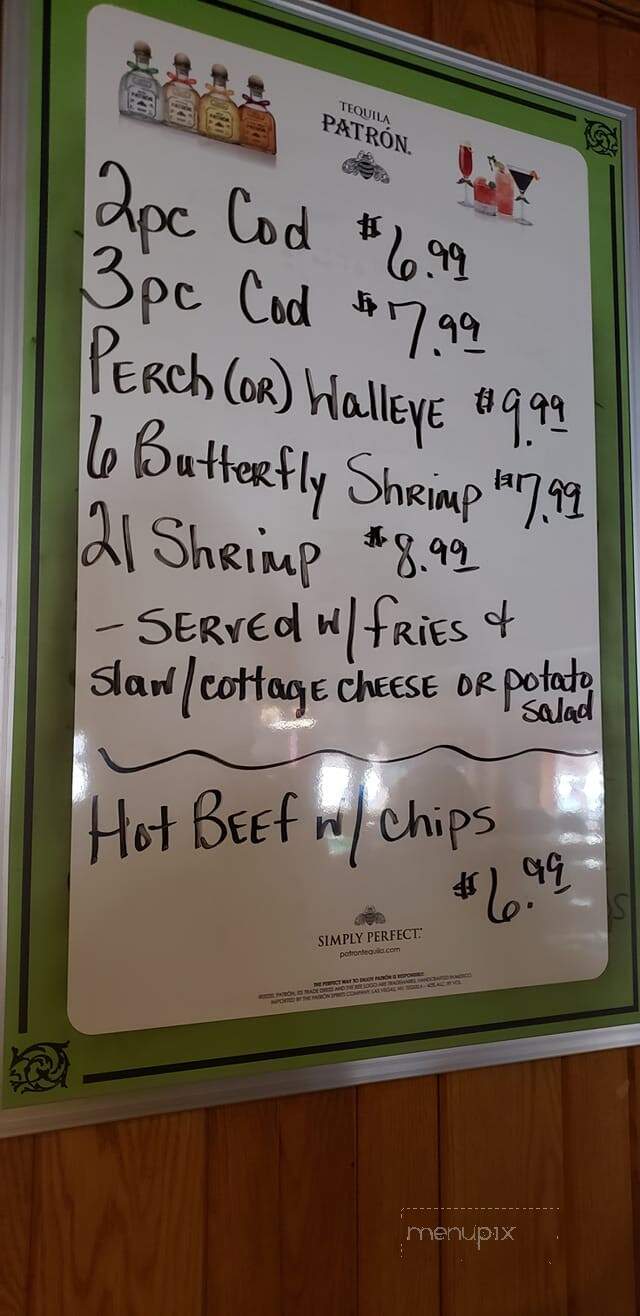 TEQUILA
PATRÓN
2pc Cod $6.99
3pc Cod $7.99
PERCh (OR) WallEYE $9.99
6 Butterfly Shrimp $7.99
21 Shrimp $8.99
- SERVEd w/ fRIES &
Slaw/cottagE chEESE OR potato
salad
Hot BEEf w/ chips
$6.99
SIMPLY PERFECT.
patrontequila.com
THE PERFECT WAY TO ENJOY PATRÓN IS RESPONSIBLY.
menupix